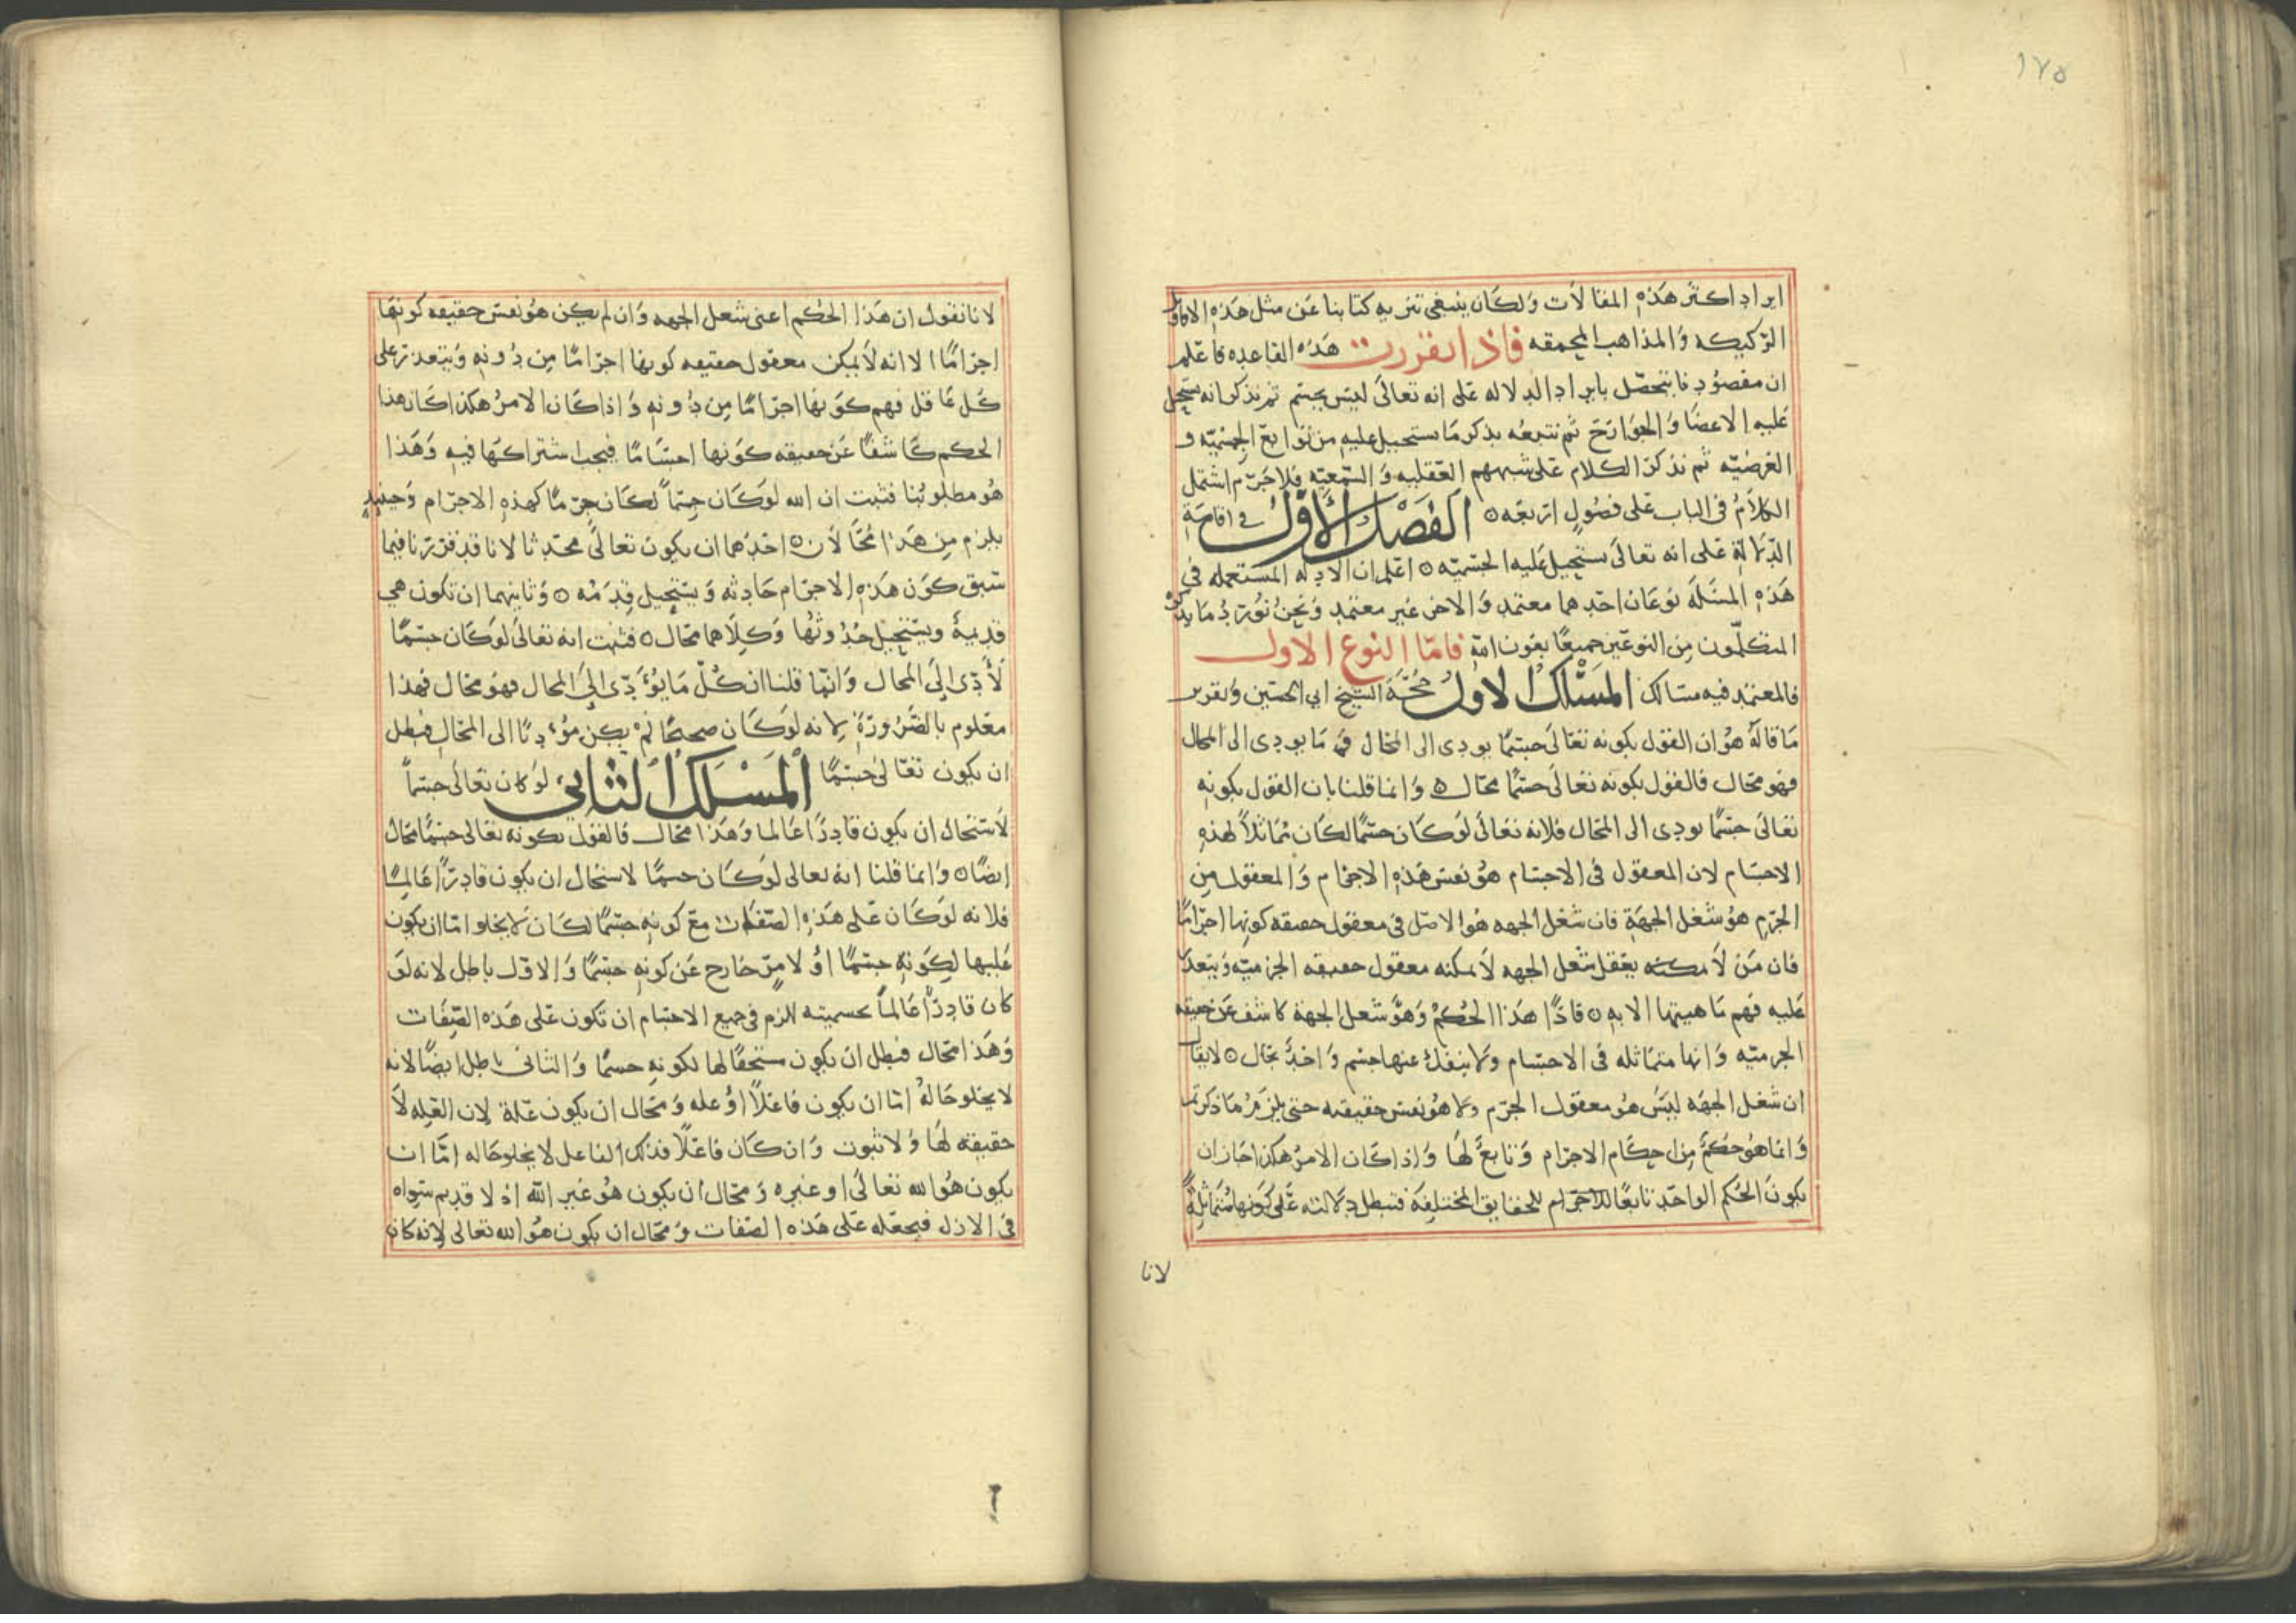 ١٧٥
ايراد اكثر هذه المقالات ولكان ينبغي تنزيه كتابنا عن مثل هذه الاقاويل
الركيكه والمذاهب المحمقه فاذا تقررت هذه القاعده فاعلم
ان مقصودنا يتحصل بايراد الدلاله على انه تعالى ليس بجسم ثم نذكر انه يستحيل
عليه الاعضا والجوارح ثم نتبعه بذكر ما يستحيل عليه من توابع الجسميه و
العرضيه ثم نذكر الكلام على شبههم العقليه والسمعيه فلا جرم اشتمل
الكلام في الباب على فصول اربعه ٥ الفصل الاول في اقامة
الدلالة على انه تعالى يستحيل عليه الجسميه ٥ اعلم ان الادله المستعمله في
هذه المسئلة نوعان احدهما معتمد والاخر غير معتمد ونحن نورد ما يذكره
المتكلمون من النوعين جميعا بعون الله فاما النوع الاول
فالمعتمد فيه مسالك المسلك الاول حجة الشيخ ابي الحسين وتقرير
ما قاله هو ان القول بكونه تعالى جسما يودى الى المحال و ما يودى الى المحال
فهو محال فالقول بكونه تعالى جسما محال ٥ وانما قلنا بان القول بكونه
تعالى جسما يودى الى المحال فلانه تعالى لو كان جسما لكان مماثلا لهذه
الاجسام لان المعقول في الاجسام هو نفس هذه الاجرام والمعقول من
الجرم هو شغل الجهة فان شغل الجهه هو الاصل في معقول حقيقه كونها اجراما
فان من لا يمكنه يعقل شغل الجهه لا يمكنه معقول حقيقه الجرميه ويتعذر
عليه فهم ماهيتها الا به ٥ فاذا هذا الحكم وهو شغل الجهة كاشف عن حقيقه
الجرميه وانها متماثله في الاجسام ولا ينفك عنها جسم واحد بحال ٥ لا يقال
ان شغل الجهه ليس هو معقول الجرم ولا هو نفس حقيقته حتى يلزم ما ذكرتم
وانما هو حكم من احكام الاجرام وتابع لها واذا كان الامر هكذا جاز ان
يكون الحكم الواحد تابعا للاجرام للحقايق المختلفة فتبطل دلالته على كونها متماثلة
لانا
لانا نقول ان هذا الحكم اعني شغل الجهه وان لم يكن هو نفس حقيقه كونها
اجراما الا انه لا يمكن معقول حقيقه كونها اجراما من دونه ويتعذر على
كل عاقل فهم كونها اجراما من دونه واذا كان الامر هكذا كان هذا
الحكم كاشفا عن حقيقه كونها اجساما فيجب اشتراكها فيه وهذا
هو مطلوبنا فثبت ان الله لو كان جسما لكان جرما كهذه الاجرام وحينيذ
يلزم من هذا محالان ٥ احدهما ان يكون تعالى محدثا لانا قد قررنا فيما
سبق كون هذه الاجرام حادثه ويستحيل قدمه ٥ وثانيهما ان تكون هي
قديمة ويستحيل حدوثها وكلاهما محال ٥ فثبت انه تعالى لو كان جسما
لأدى الى المحال وانما قلنا ان كل ما يؤدى الى المحال فهو محال فهذا
معلوم بالضرورة لانه لو كان صحيحا لم يكن مؤديا الى المحال فبطل
ان يكون تعالى جسما المسلك الثاني لو كان تعالى جسما
لاستحال ان يكون قادرا عالما وهذا محال فالقول بكونه تعالى جسما محال
ايضا ٥ وانما قلنا انه تعالى لو كان جسما لاستحال ان يكون قادرا عالما
فلانه لو كان على هذه الصفات مع كونه جسما لكان لا يخلوا اما ان يكون
عليها لكونه جسما او لامر خارج عن كونه جسما والاول باطل لانه لو
كان قادرا عالما بجسميته للزم في جميع الاجسام ان تكون على هذه الصفات
وهذا محال فبطل ان يكون مستحقا لها لكونه جسما والثاني باطل ايضا لانه
لا يخلو حاله اما ان يكون فاعلا او عله ومحال ان يكون علة لان العله لا
حقيقه لها ولا ثبوت وان كان فاعلا فذلك الفاعل لا يخلو حاله اما ان
يكون هو الله تعالى او غيره ومحال ان يكون هو غير الله اذ لا قديم سواه
في الازل فيجعله على هذه الصفات ومحال ان يكون هو الله تعالى لانه كان